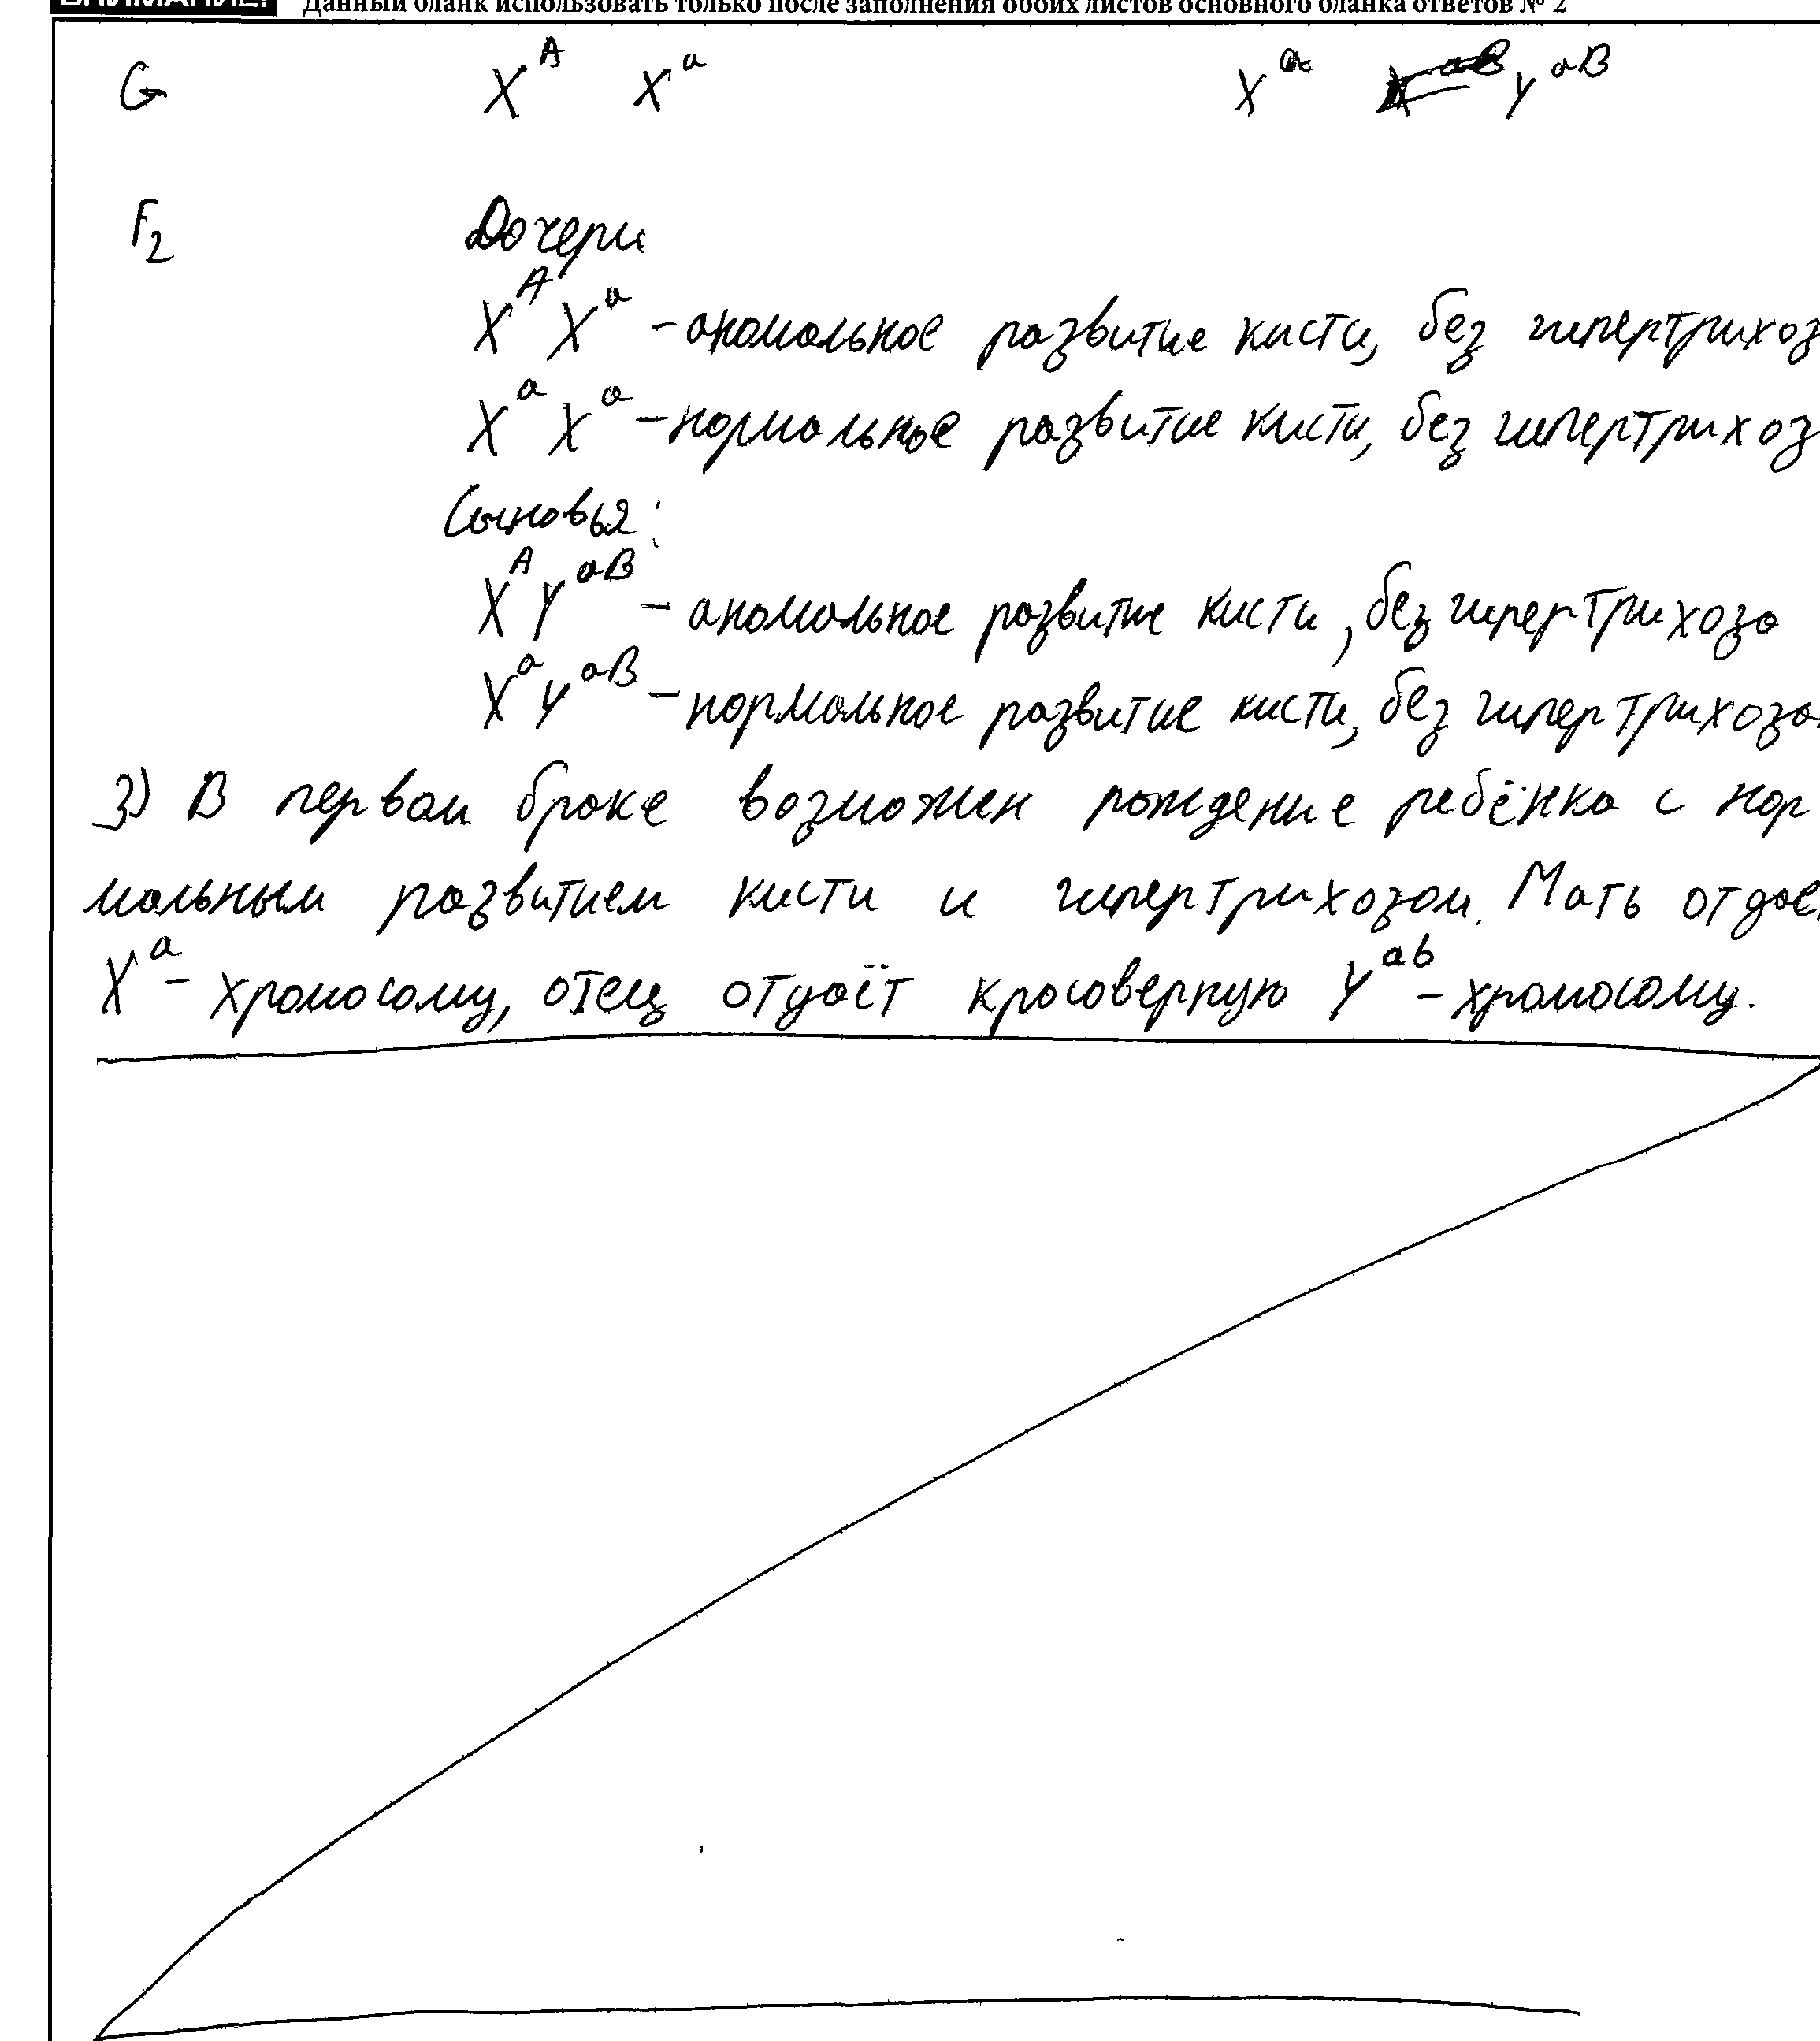 ВНИМАНИЕ! Данный бланк использовать только после заполнения обоих листов основного бланка ответов № 2
G X^A X^a X^a Y^aB
F2 Дочери
X^A X^a – аномальное развитие кисти, без гипертрихоз
X^a X^a – нормальное развитие кисти, без гипертрихоз
Сыновья:
X^A Y^aB – аномальное развитие кисти, без гипертрихоза
X^a Y^aB – нормальное развитие кисти, без гипертрихоза
3) В первом браке возможен рождение ребёнка с нор
мальным развитием кисти и гипертрихозом. Мать отдаё
X^a – хромосому, отец отдаёт кросоверную Y^ab – хромосому.